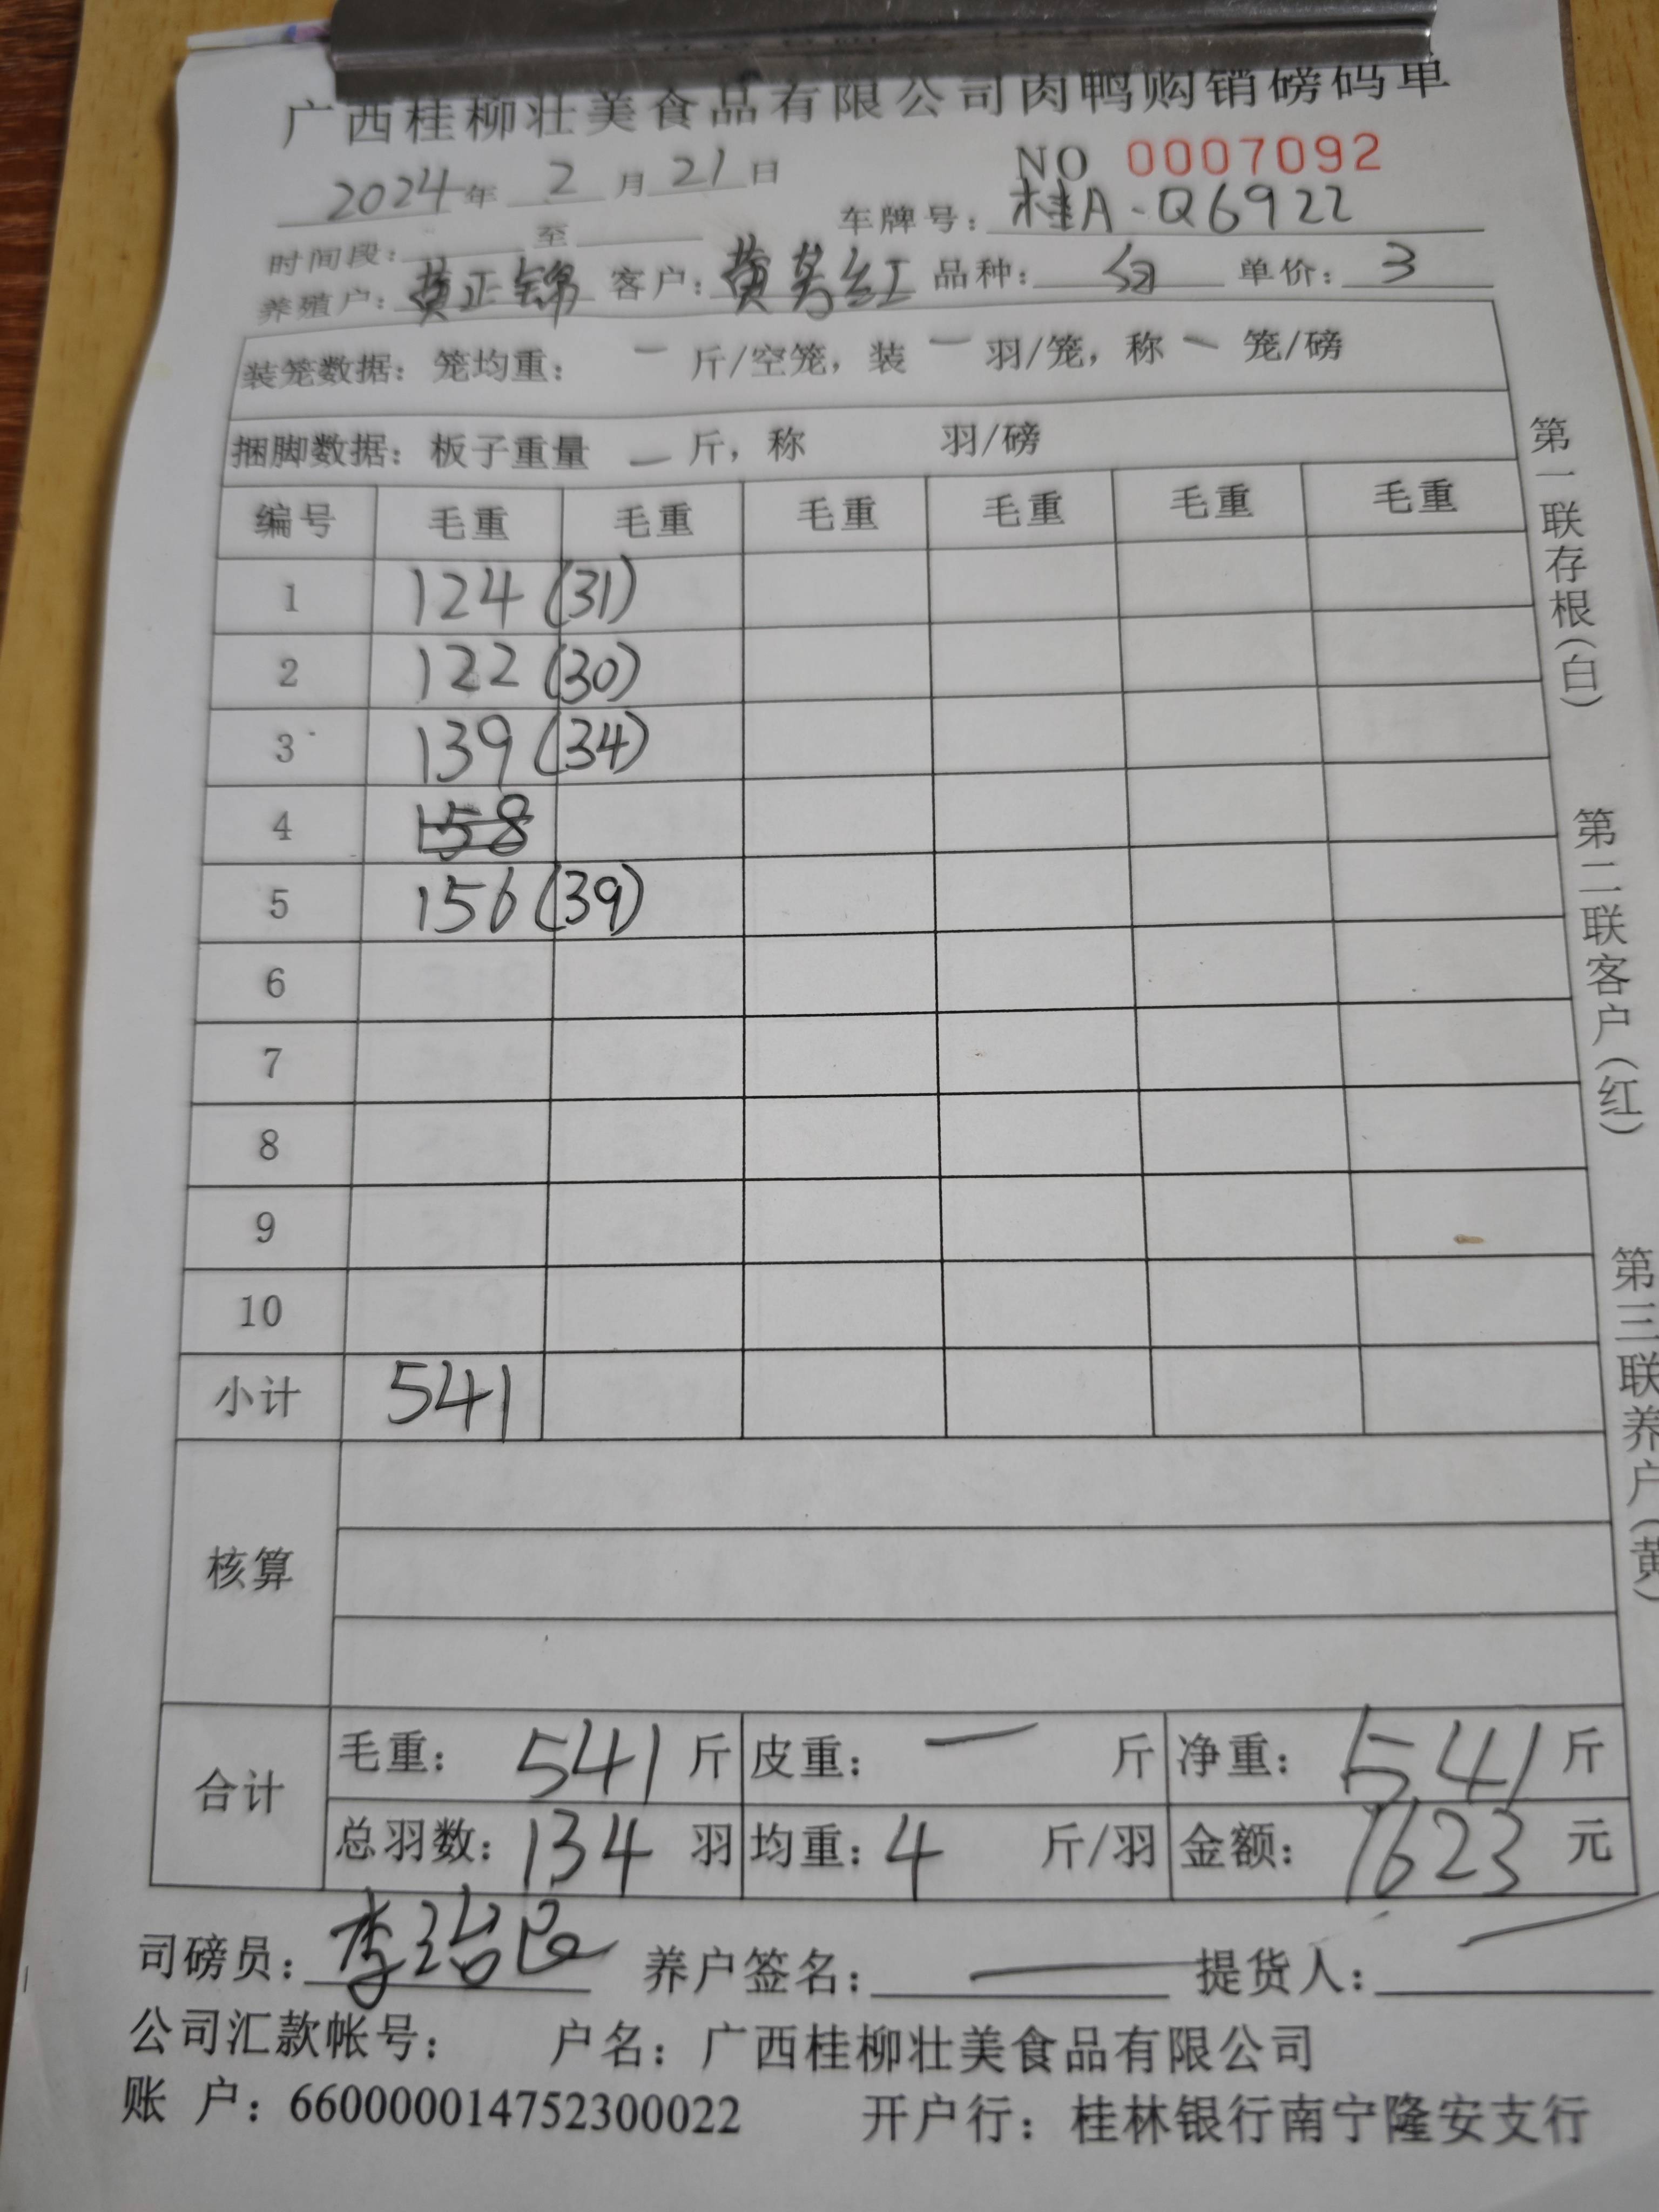 广西桂柳壮美食品有限公司肉鸭购销磅码单
NO 0007092
2024年 2 月 21 日
时间段: 至 车牌号: 桂A-Q6922
养殖户: 黄正锦 客户: 黄 红 品种: 单价: 3
装笼数据: 笼均重: 一 斤/空笼, 装 一 羽/笼, 称 一 笼/磅
捆脚数据: 板子重量 一 斤, 称 羽/磅
编号 毛重 毛重 毛重 毛重 毛重 毛重
1 124 (31)
2 122 (30)
3 139 (34)
4 158
5 156 (39)
6
7
8
9
10
小计 541
核算
合计 毛重: 541 斤 皮重: 一 斤 净重: 541 斤
总羽数: 134 羽 均重: 4 斤/羽 金额: 1623 元
司磅员: 李治 养户签名: 一 提货人: 一
公司汇款帐号: 户名: 广西桂柳壮美食品有限公司
账 户: 660000014752300022 开户行: 桂林银行南宁隆安支行
第一联存根(白)
第二联客户(红)
第三联养户(黄)